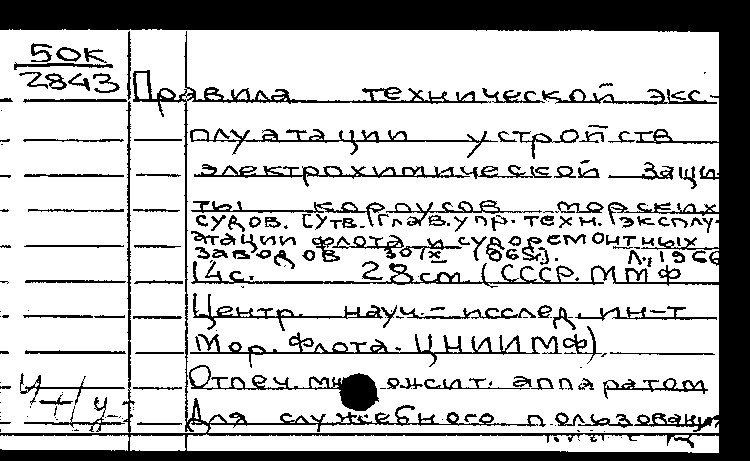 50к
2843
Правила технической экс-
плуатации устройств
электрохимической защи-
ты корпусов морских
судов. [Утв. Глав. упр. техн. эксплу-
атации флота и судоремонтных
заводов 30/X 1965г.]. Л., 1966
14с. 28см. (СССР. ММФ
Центр. науч.-исслед. ин-т
Мор. флота. ЦНИИМФ).
Отпеч. аппаратом
Для служебного пользования